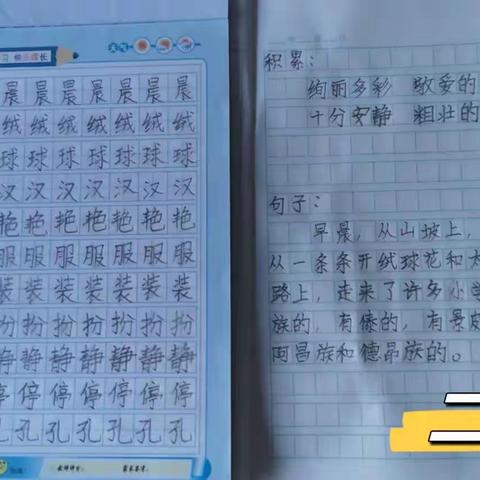 天气
晨晨晨晨晨晨晨
绒绒绒绒绒绒绒
球球球球球球球
汉汉汉汉汉汉汉
艳艳艳艳艳艳艳
服服服服服服服
装装装装装装装
扮扮扮扮扮扮扮
静静静静静静静
停停停停停停停
孔孔孔孔孔孔孔
积累：
绚丽多彩 敬爱的
十分安静 粗壮的
句子：
早晨，从山坡上，
从一条条开绒球花和
路上，走来了许多小学
族的，有傣的，有景
阿昌族和德昂族的。